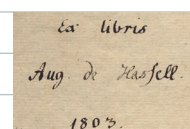 Ex libris
Aug. de Hassell.
1803.